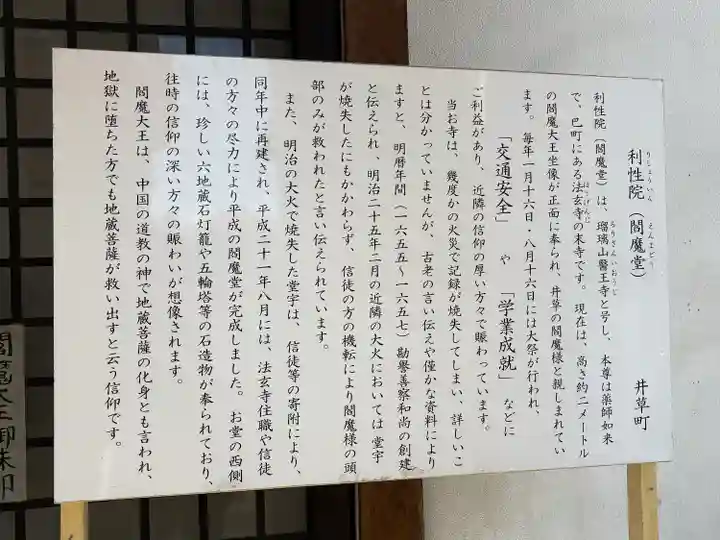 利性院（閻魔堂）　井草町
りしょういん　えんまどう
利性院（閻魔堂）は、瑠璃山醫王寺と号し、本尊は薬師如来
るりざんいおうじ
で、巴町にある法玄寺の末寺です。現在は、高さ約二メートル
ほうげんじ
の閻魔大王坐像が正面に奉られ、井草の閻魔様と親しまれてい
ます。毎年一月十六日・八月十六日には大祭が行われ、
「交通安全」や「学業成就」などに
ご利益があり、近隣の信仰の厚い方々で賑わっています。
当お寺は、幾度かの火災で記録が焼失してしまい、詳しいこ
とは分かっていませんが、古老の言い伝えや僅かな資料により
ますと、明暦年間（一六五五～一六五七）勘譽善察和尚の創建
と伝えられ、明治二十五年二月の近隣の大火においては堂宇
が焼失したにもかかわらず、信徒の方の機転により閻魔様の頭
部のみが救われたと言い伝えられています。
また、明治の大火で焼失した堂宇は、信徒等の寄附により、
同年中に再建され、平成二十一年八月には、法玄寺住職や信徒
の方々の尽力により平成の閻魔堂が完成しました。お堂の西側
には、珍しい六地蔵石灯籠や五輪塔等の石造物が奉られており、
往時の信仰の深い方々の賑わいが想像されます。
閻魔大王は、中国の道教の神で地蔵菩薩の化身とも言われ、
地獄に堕ちた方でも地蔵菩薩が救い出すと云う信仰です。
閻魔大王御朱印